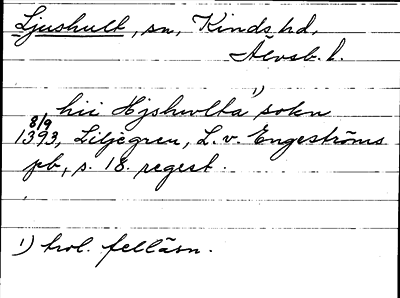 Ljushult, sn, Kinds hd,
Älvsb. l.
hii Hjshwlta¹⁾ sokn
8/9
1393, Liljegren, L. v. Engeströms
pb, s. 18. regest.
1) trol. felläsn.